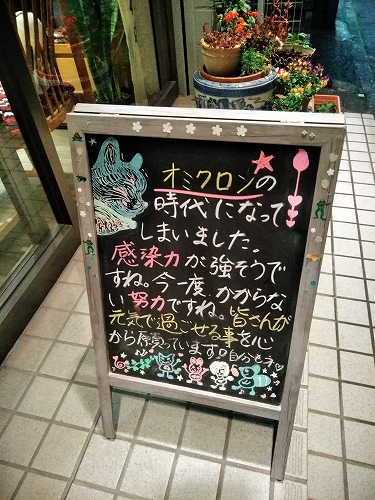 オミクロンの
時代になって
しまいました。
感染力が強そうで
すね。今一度かからな
い努力ですね。皆さんが
元気で過ごせる事を心
から願っています。自分もネ♡